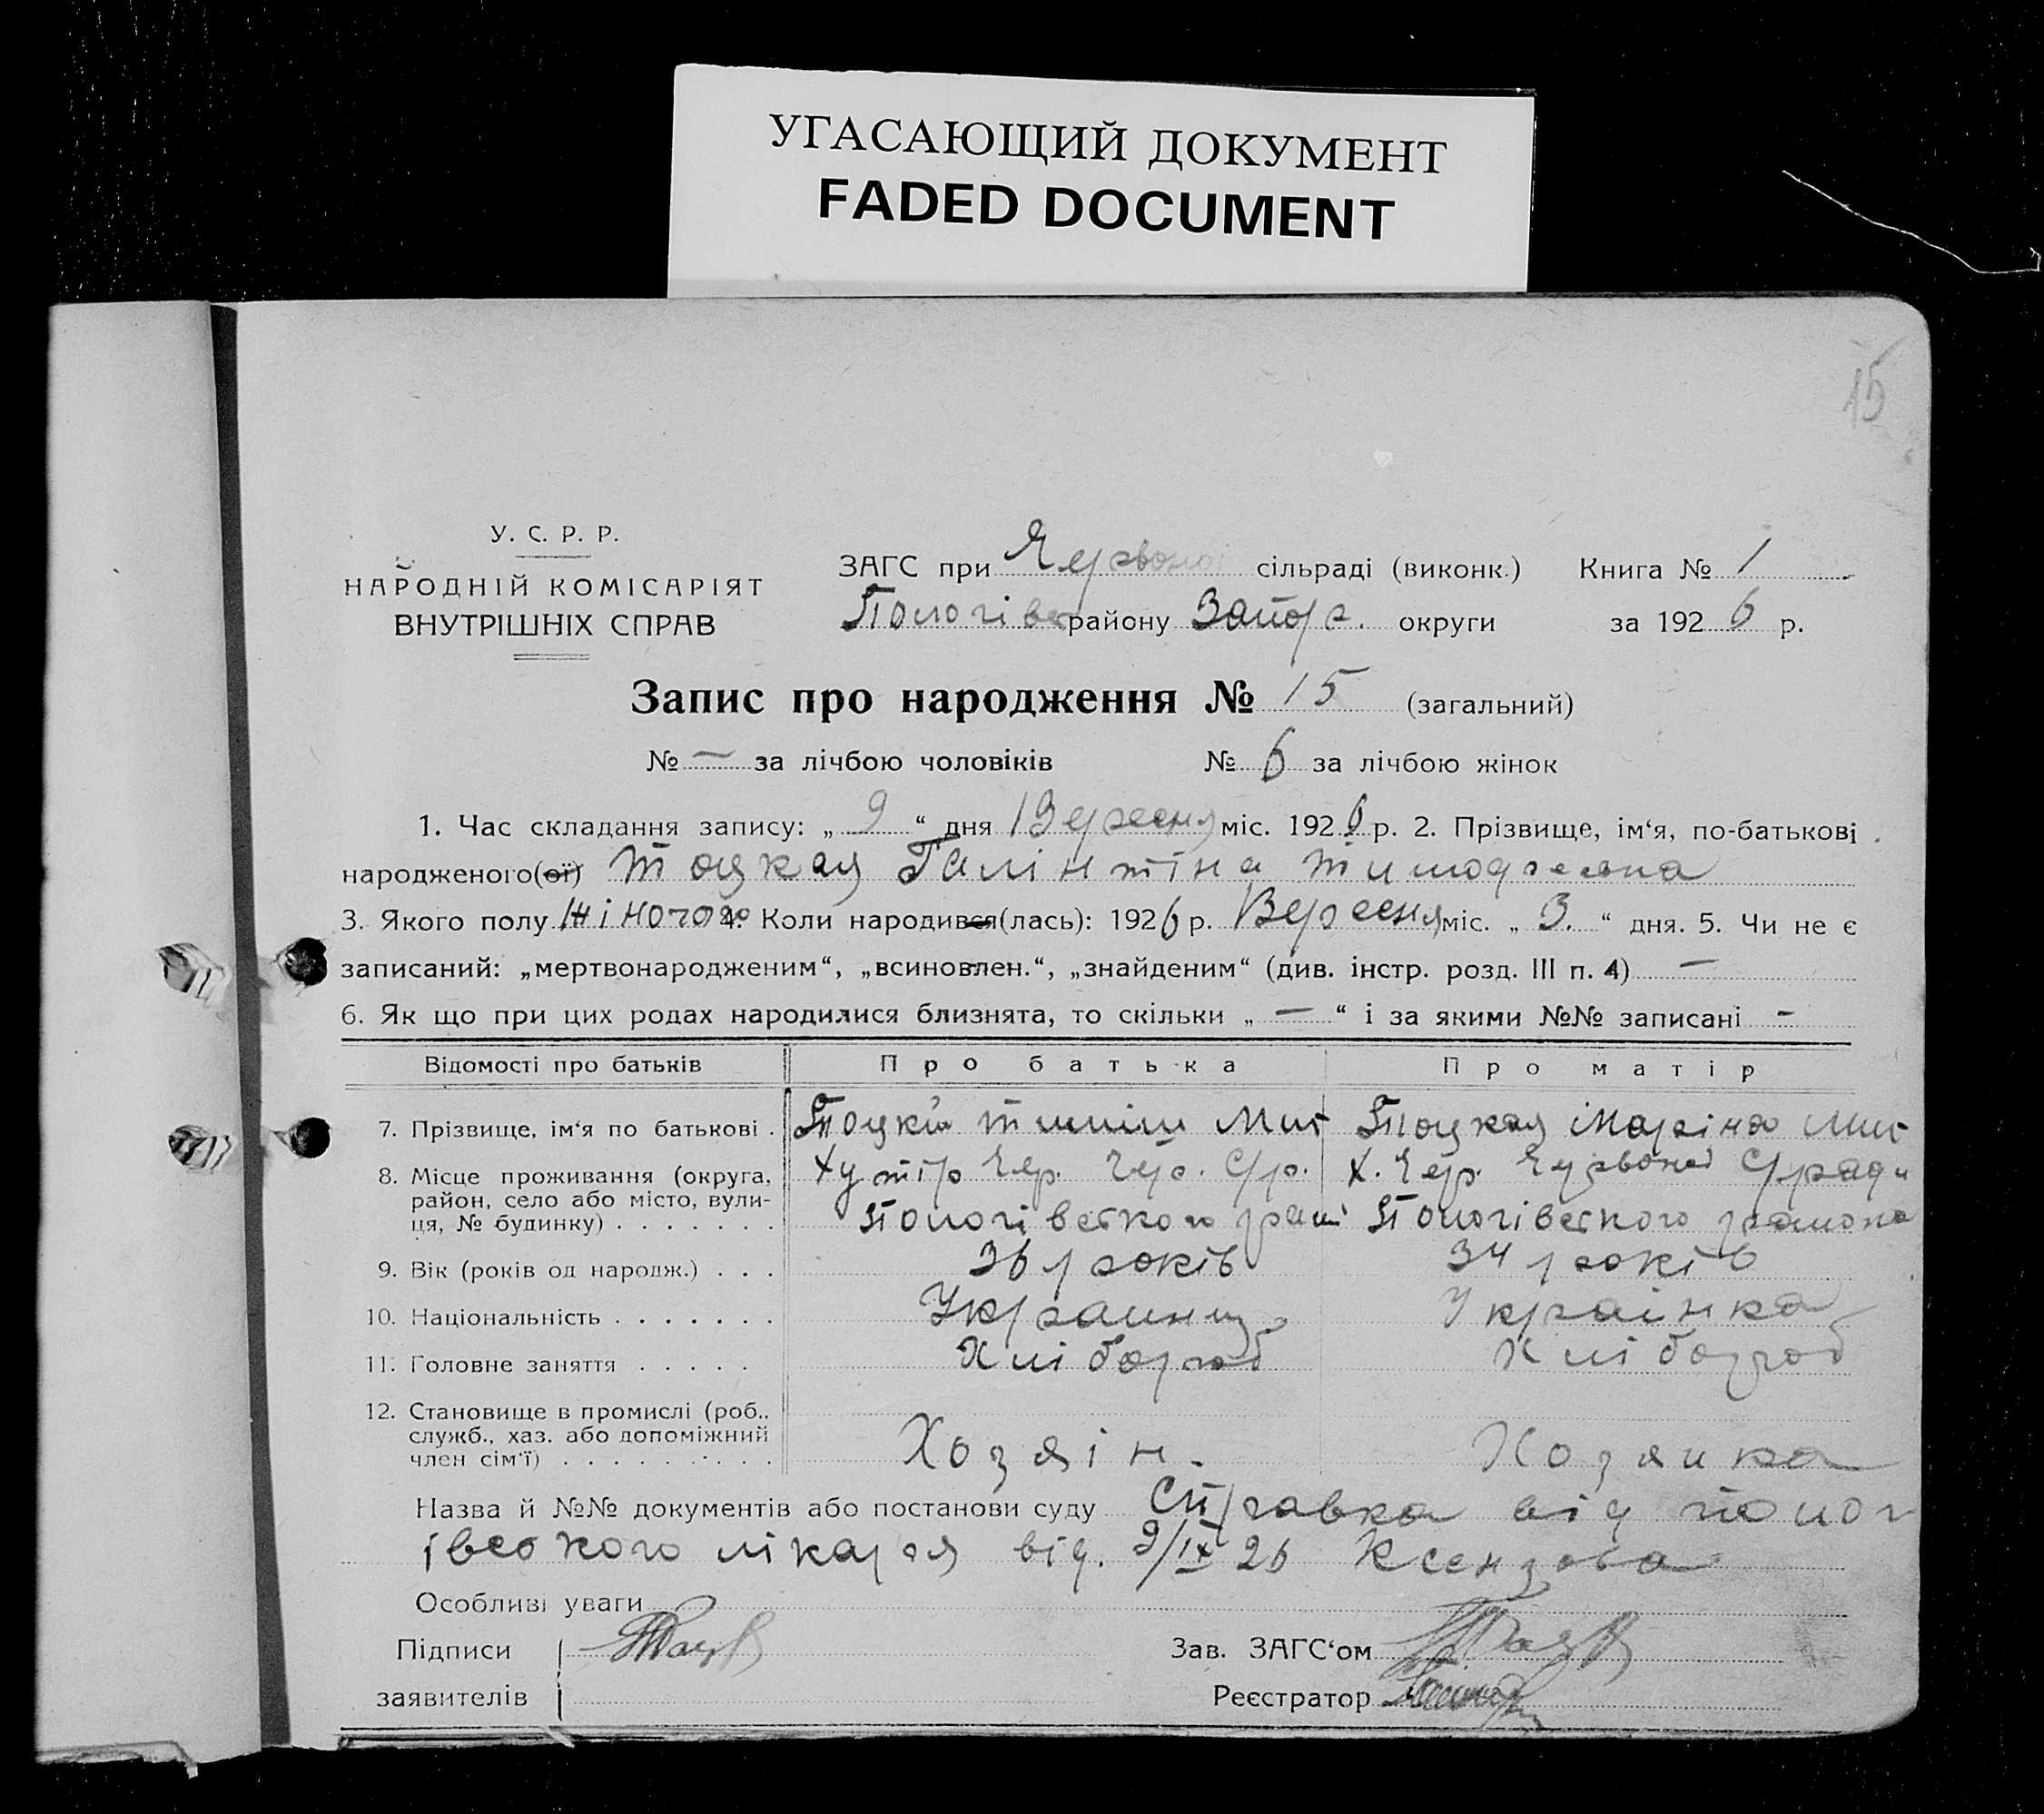 УГАСАЮЩИЙ ДОКУМЕНТ
FADED DOCUMENT
15
У. С. Р. Р.
НАРОДНІЙ КОМІСАРІЯТ
ВНУТРІШНІХ СПРАВ
ЗАГС при Червоної сільраді (виконк.) Книга № 1
Пологівс району Запор. округи за 1926 р.
Запис про народження № 15 (загальний)
№ — за лічбою чоловіків № 6 за лічбою жінок
1. Час складання запису: „ 9 “ дня Вересня міс. 1926 р. 2. Прізвище, ім‘я, по-батькові
народженого(ої) Тоцкая
3. Якого полу Жіночого 4. Коли народився(лась): 1926 р. Вересня міс. „ 3. “ дня. 5. Чи не є
записаний: „мертвонародженим“, „всиновлен.“, „знайденим“ (див. інстр. розд. III п. 4) —
6. Як що при цих родах народилися близнята, то скільки „ — “ і за якими №№ записані -
Відомості про батьків Про батька Про матір
7. Прізвище, ім‘я по батькові . Тоцкий Мит Тоцкая Маріна Мит
8. Місце проживання (округа, Хутір Чер. Чер. С/р. Х. Чер. Червоної С/ради
район, село або місто, вули-
ця, № будинку) . . . . . . . Пологівського рай Пологівського района
9. Вік (років од народж.) . . . 36 років 34 років
10. Національність . . . . . . . Украинец Украінка
11. Головне заняття . . . . . Хлібороб Хлібороб
12. Становище в промислі (роб.,
служб., хаз. або допоміжний
член сім‘ї) . . . . . . . . . . Хозяін. Хозяика
Назва й №№ документів або постанови суду Справка від полог
івського лікаря від. 9/IX 26 Ксендзова
Особливі уваги
Підписи Зав. ЗАГС‘ом
заявителів Реєстратор